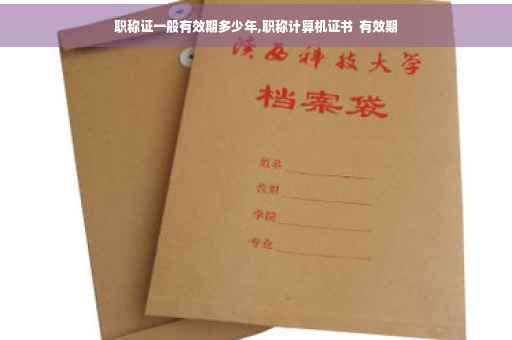 职称证一般有效期多少年,职称计算机证书 有效期
陕西科技大学
档案袋
姓名
性别
学院
专业